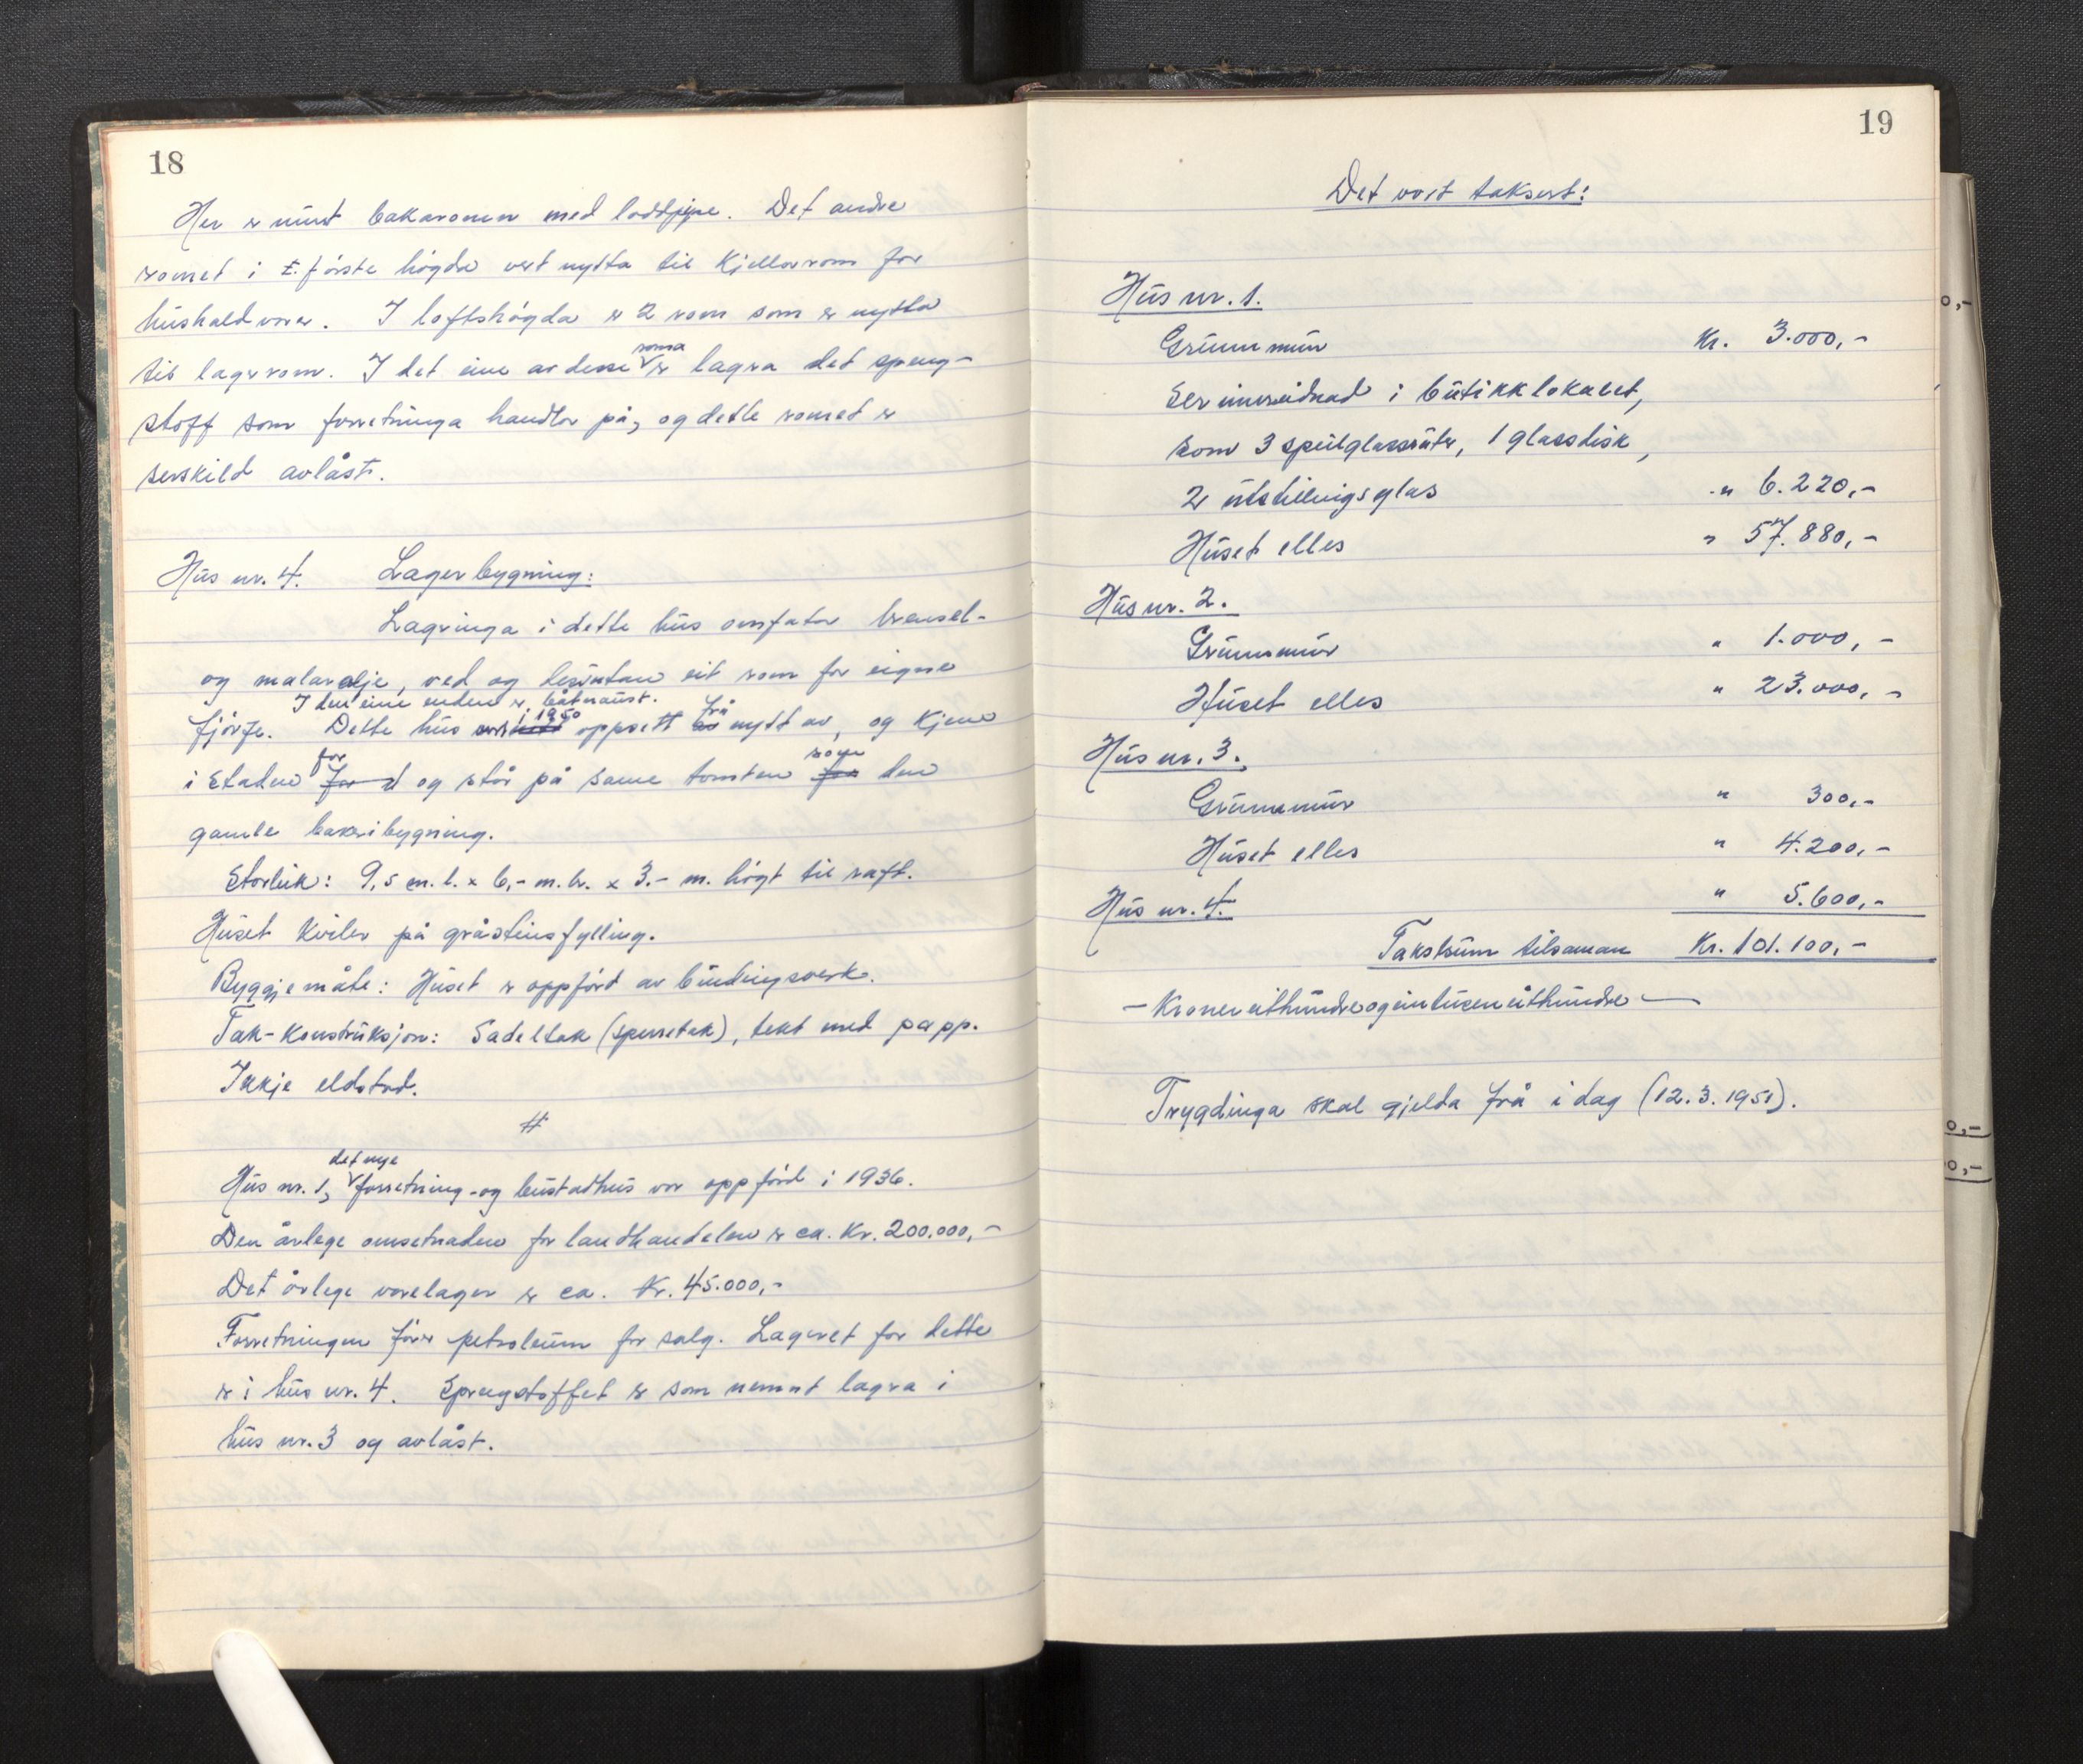 18
Her er murt bakaromn med loddpipe. Det andre
romet i 1. første høgda vert nytta til kjellarrom for
hushaldvarer. I loftshøgda er 2 rom som er nytta
til lagerrom. I det eine av desse roma er lagra det spreng-
stoff som forretninga handlar på, og dette romet er
serskild avlåst.
Hus nr. 4. Lagerbygning:
Lagringa i dette hus omfatar brensel-
og malarolje, ved og desutan eit rom for eigne
I den eine enden er båtnaust.
fjørfe. Dette hus i 1950 oppsett frå nytt av, og kjem
i staden for og står på same tomten som den
gamle bakeribygning.
Storleik: 9,5 m. l. x 6,- m. br. x 3.- m. høgt til raft.
Huset kviler på gråsteinsfylling.
Byggjemåte: Huset er oppførd av bindingsverk.
Tak-konstruksjon: Sadeltak (sperretak), tekt med papp.
Ikkje eldstad.
#
Hus nr. 1, det nye forretning- og bustadhus var oppførd i 1936.
Den årlege omsetnaden for landhandelen er ca. kr. 200.000,-
Det årlege varelager er ca. kr. 45.000,-
Forretningen fører petroleum for salg. Lageret for dette
er i hus nr. 4. Sprengstoffet er som nemnt lagra i
hus nr. 3 og avlåst.
19
Det vart taksert:
Hus nr. 1.
Grunnmur Kr. 3.000,-
Ser innreidnad i butikklokalet,
som 3 speilglassruter, 1 glassdisk,
2 utstillingsglas " 6.220,-
Huset elles " 57.880,-
Hus nr. 2.
Grunnmur " 1.000,-
Huset elles " 23.000,-
Hus nr. 3.
Grunnmur " 300,-
Huset elles " 4.200,-
Hus nr. 4. " 5.600,-
Takstsum tilsaman Kr. 101.100,-
- Kroner eithundreogeintuseneithundre -
Trygdinga skal gjelda frå i dag (12.3.1951).
0,-
0,-
0,-